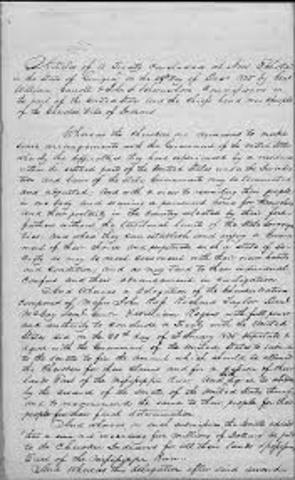 Articles of a Treaty concluded at New Echota
in the State of Georgia on the 29th day of Decr 1835 by Genl
William Carroll & John F. Schermerhorn Commissioners on
the part of the United States and the Chiefs head men & people
of the Cherokee tribe of Indians
Whereas the Cherokees are anxious to make
some arrangements with the Government of the United States
whereby the difficulties they have experienced by a residence
within the settled parts of the United States under the jurisdiction
and laws of the State Governments may be terminated
and adjusted. And with a view to reuniting their people
in one body and securing a permanent home for themselves
and their posterity in the Country selected by their fore-
fathers without the territorial limits of the State Sovereign-
ties. And where they can establish and enjoy a Govern-
ment of their choice and perpetuate such a state of so-
ciety as may be most consonant with their views habits
and condition, and as may tend to their individual
comfort and their advancement in civilization
And Whereas a Delegation of the Cherokee Nation
composed of Major John Ridge Richard Taylor Danl
McCoy Saml Gunter & William Rogers with full power
and authority to conclude a Treaty with the United
States did on the 28th day of February 1835 stipulate &
agree with the Government of the United States to submit
to the Senate to fix the amount which should be allowed
the Cherokees for their claims and for a cession of their
lands East of the Mississippi River. And agreed to abide
by the award of the Senate of the United States themselves
and to recommend the same to their people for their
final determination
And whereas on such submission the Senate advised
that a sum not exceeding five millions of Dollars be paid
to the Cherokee Indians for all their lands & possessions
East of the Mississippi River
And whereas this delegation after said award